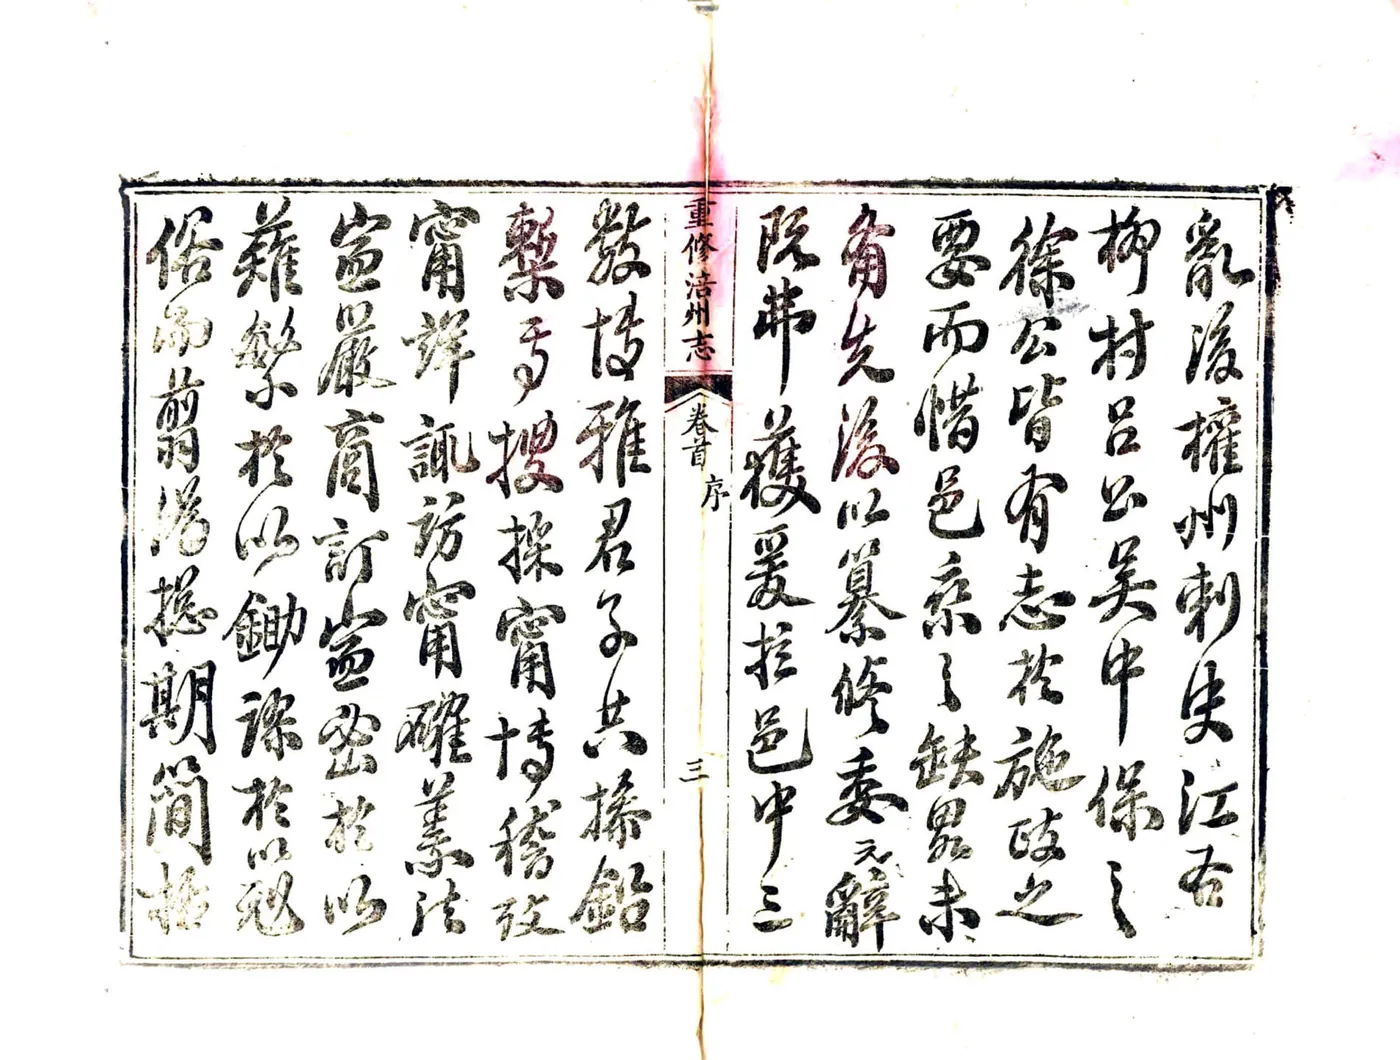 亂後權州刺史江右
柳村呂公吳中保之
徐公皆有志於施政之
要而惜邑乘之缺畧未
備先後以纂修委元辭
既弗獲爰拉邑中三
重修涪州志
卷首
序
三
數博雅君子共操鉛
槧予搜採甯博稽攷
甯詳諏訪甯確義法
宜嚴商訂宜密於以
薙繁於以鋤謬於以剋
俗而翦淺總期簡括